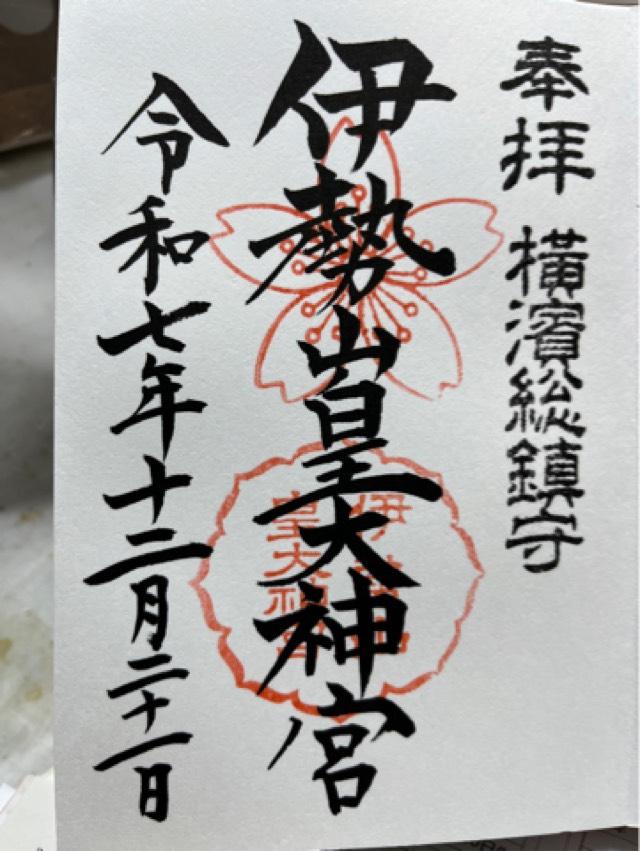 奉拝 横濱総鎮守
伊勢山皇大神宮
伊勢山
皇大神宮
令和七年十二月二十一日